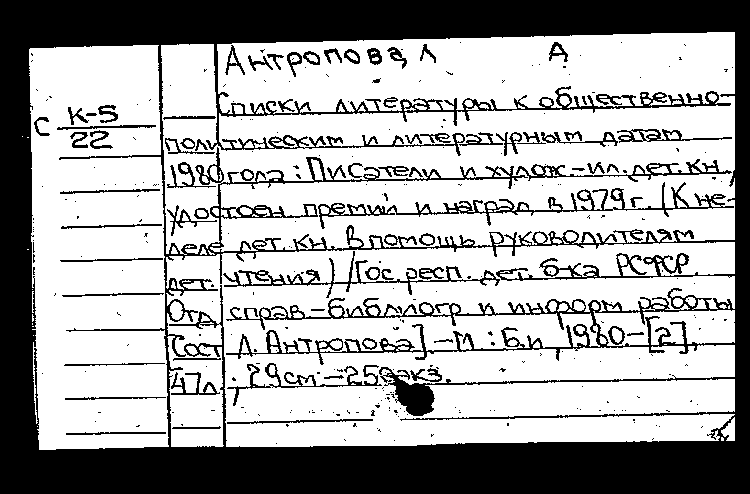 Антропова, Л А
С К-5
22
Списки литературы к общественно-
политическим и литературным датам
1980 года: Писатели и худож.-ил. дет. кн.,
удостоен. премий и наград в 1979 г. (К не-
деле дет. кн. В помощь руководителям
дет. чтения) / Гос. респ. дет. б-ка РСФСР.
Отд. справ.-библиогр и информ работы
[Сост Л. Антропова]. - М : Б.и , 1980 - [2],
47 л. ; 29 см. - 250 экз.